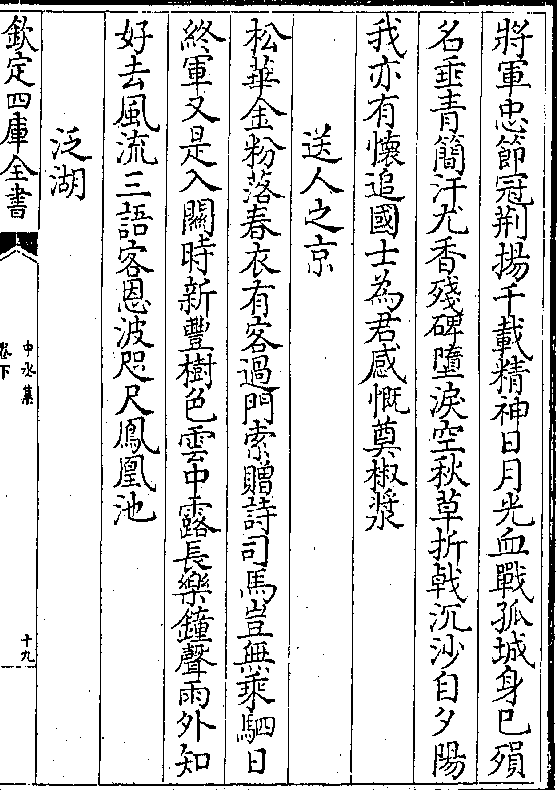 將軍忠節冠荆揚千載精神日月光血戰孤城身已殞
名垂青簡汗尤香殘碑墮淚空秋草折戟沉沙自夕陽
我亦有懷追國士為君感慨奠椒漿
送人之京
松華金粉落春衣有客過門索贈詩司馬豈無乘駟日
終軍又是入關時新豐樹色雲中露長樂鐘聲雨外知
好去風流三語客恩波咫尺鳳凰池
泛湖
欽定四庫全書
中丞集
卷下
十九